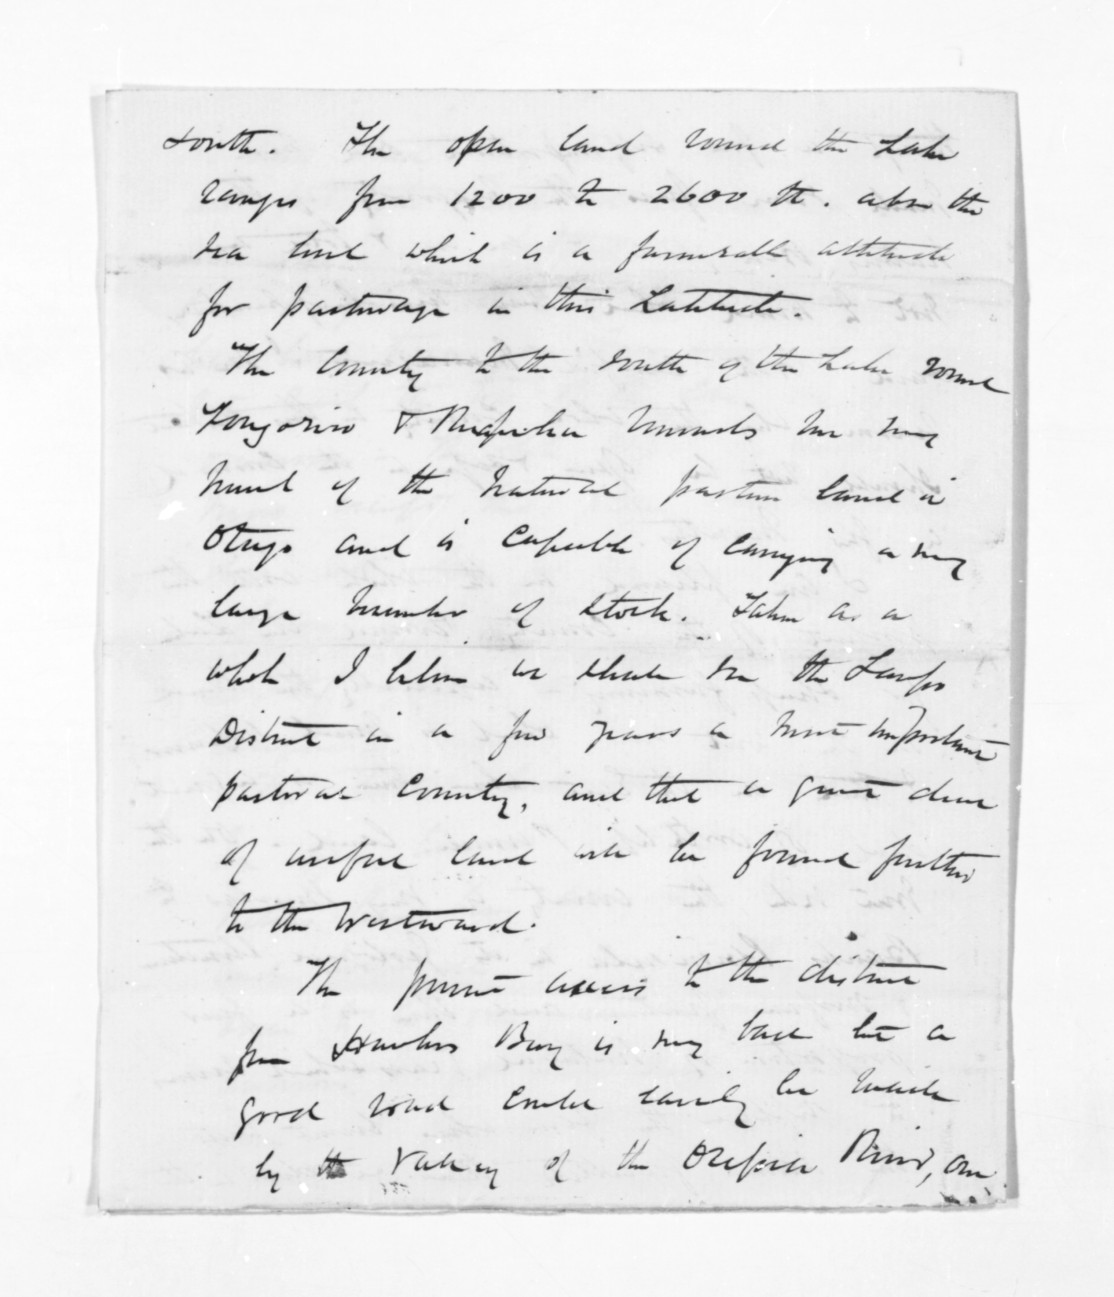 South. The open land round the Lake
ranges from 1200 to 2600 ft. above the
sea level which is a favourable altitude
for pasturage in this Latitude.
The Country to the south of the Lake round
Tongariro & Ruapehu reminds me very
much of the natural pasture land in
Otago and is capable of carrying a very
large number of stock. Taken as a
whole I believe we shall see the Taupo
District in a few years a most important
pastoral Country, and that a great deal
of useful land will be found further
to the Westward.
The present access to the district
from Hawkes Bay is very bad but a
good road could easily be made
by the valley of the River, one